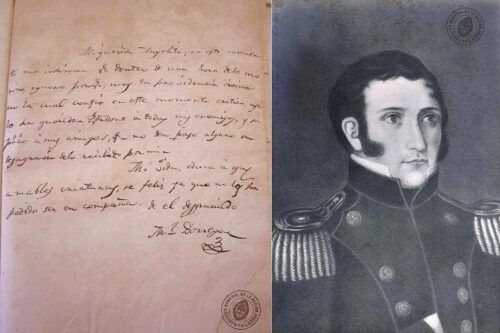 Mi querida Angelita, en este momen
to me intiman q. dentro de una hora debo mo
rir, ignoro porq.; mas la providencia divina
en la cual confio en este momento critico, asi
lo ha querido. Perdono a todos mis enemigos, y su
plico a mis amigos, q. no den paso alguno en
desagravio de lo recibido por mi.
Mi vida, educa a esas
amables criaturas, se feliz, ya que no lo has
podido ser en compañia de el desgraciado
Ml. Dorrego
GENERAL DE LA NACION